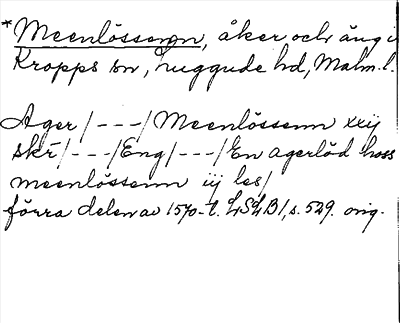 *Meenlössenn, åker och äng i
Kropps sn, Luggude hd, Malm.l.
Ager/---/Meenlössenn xxij
skr/---/Eng/---/En agerlöd hoss
meenlössenn iij les/
förra delen av 1570-t. LSLB1, s. 529. orig.